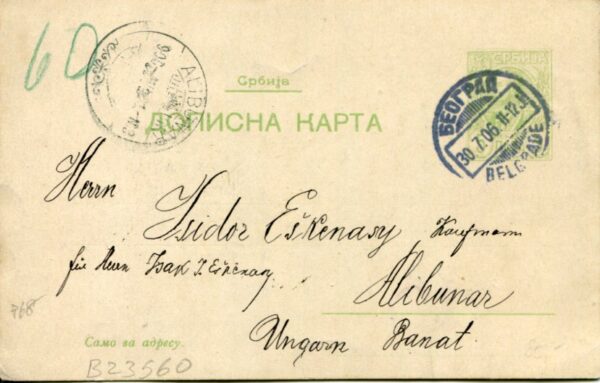 60
СРБИЈА
Србија
ДОПИСНА КАРТА
БЕОГРАД
30.7.06.11-12
BELGRADE
Herrn
Isidor Eškenasy Kaufmann
für Herrn Isak I. Eškenasy
Alibunar
Ungarn Banat
768
Само за адресу.
B23560